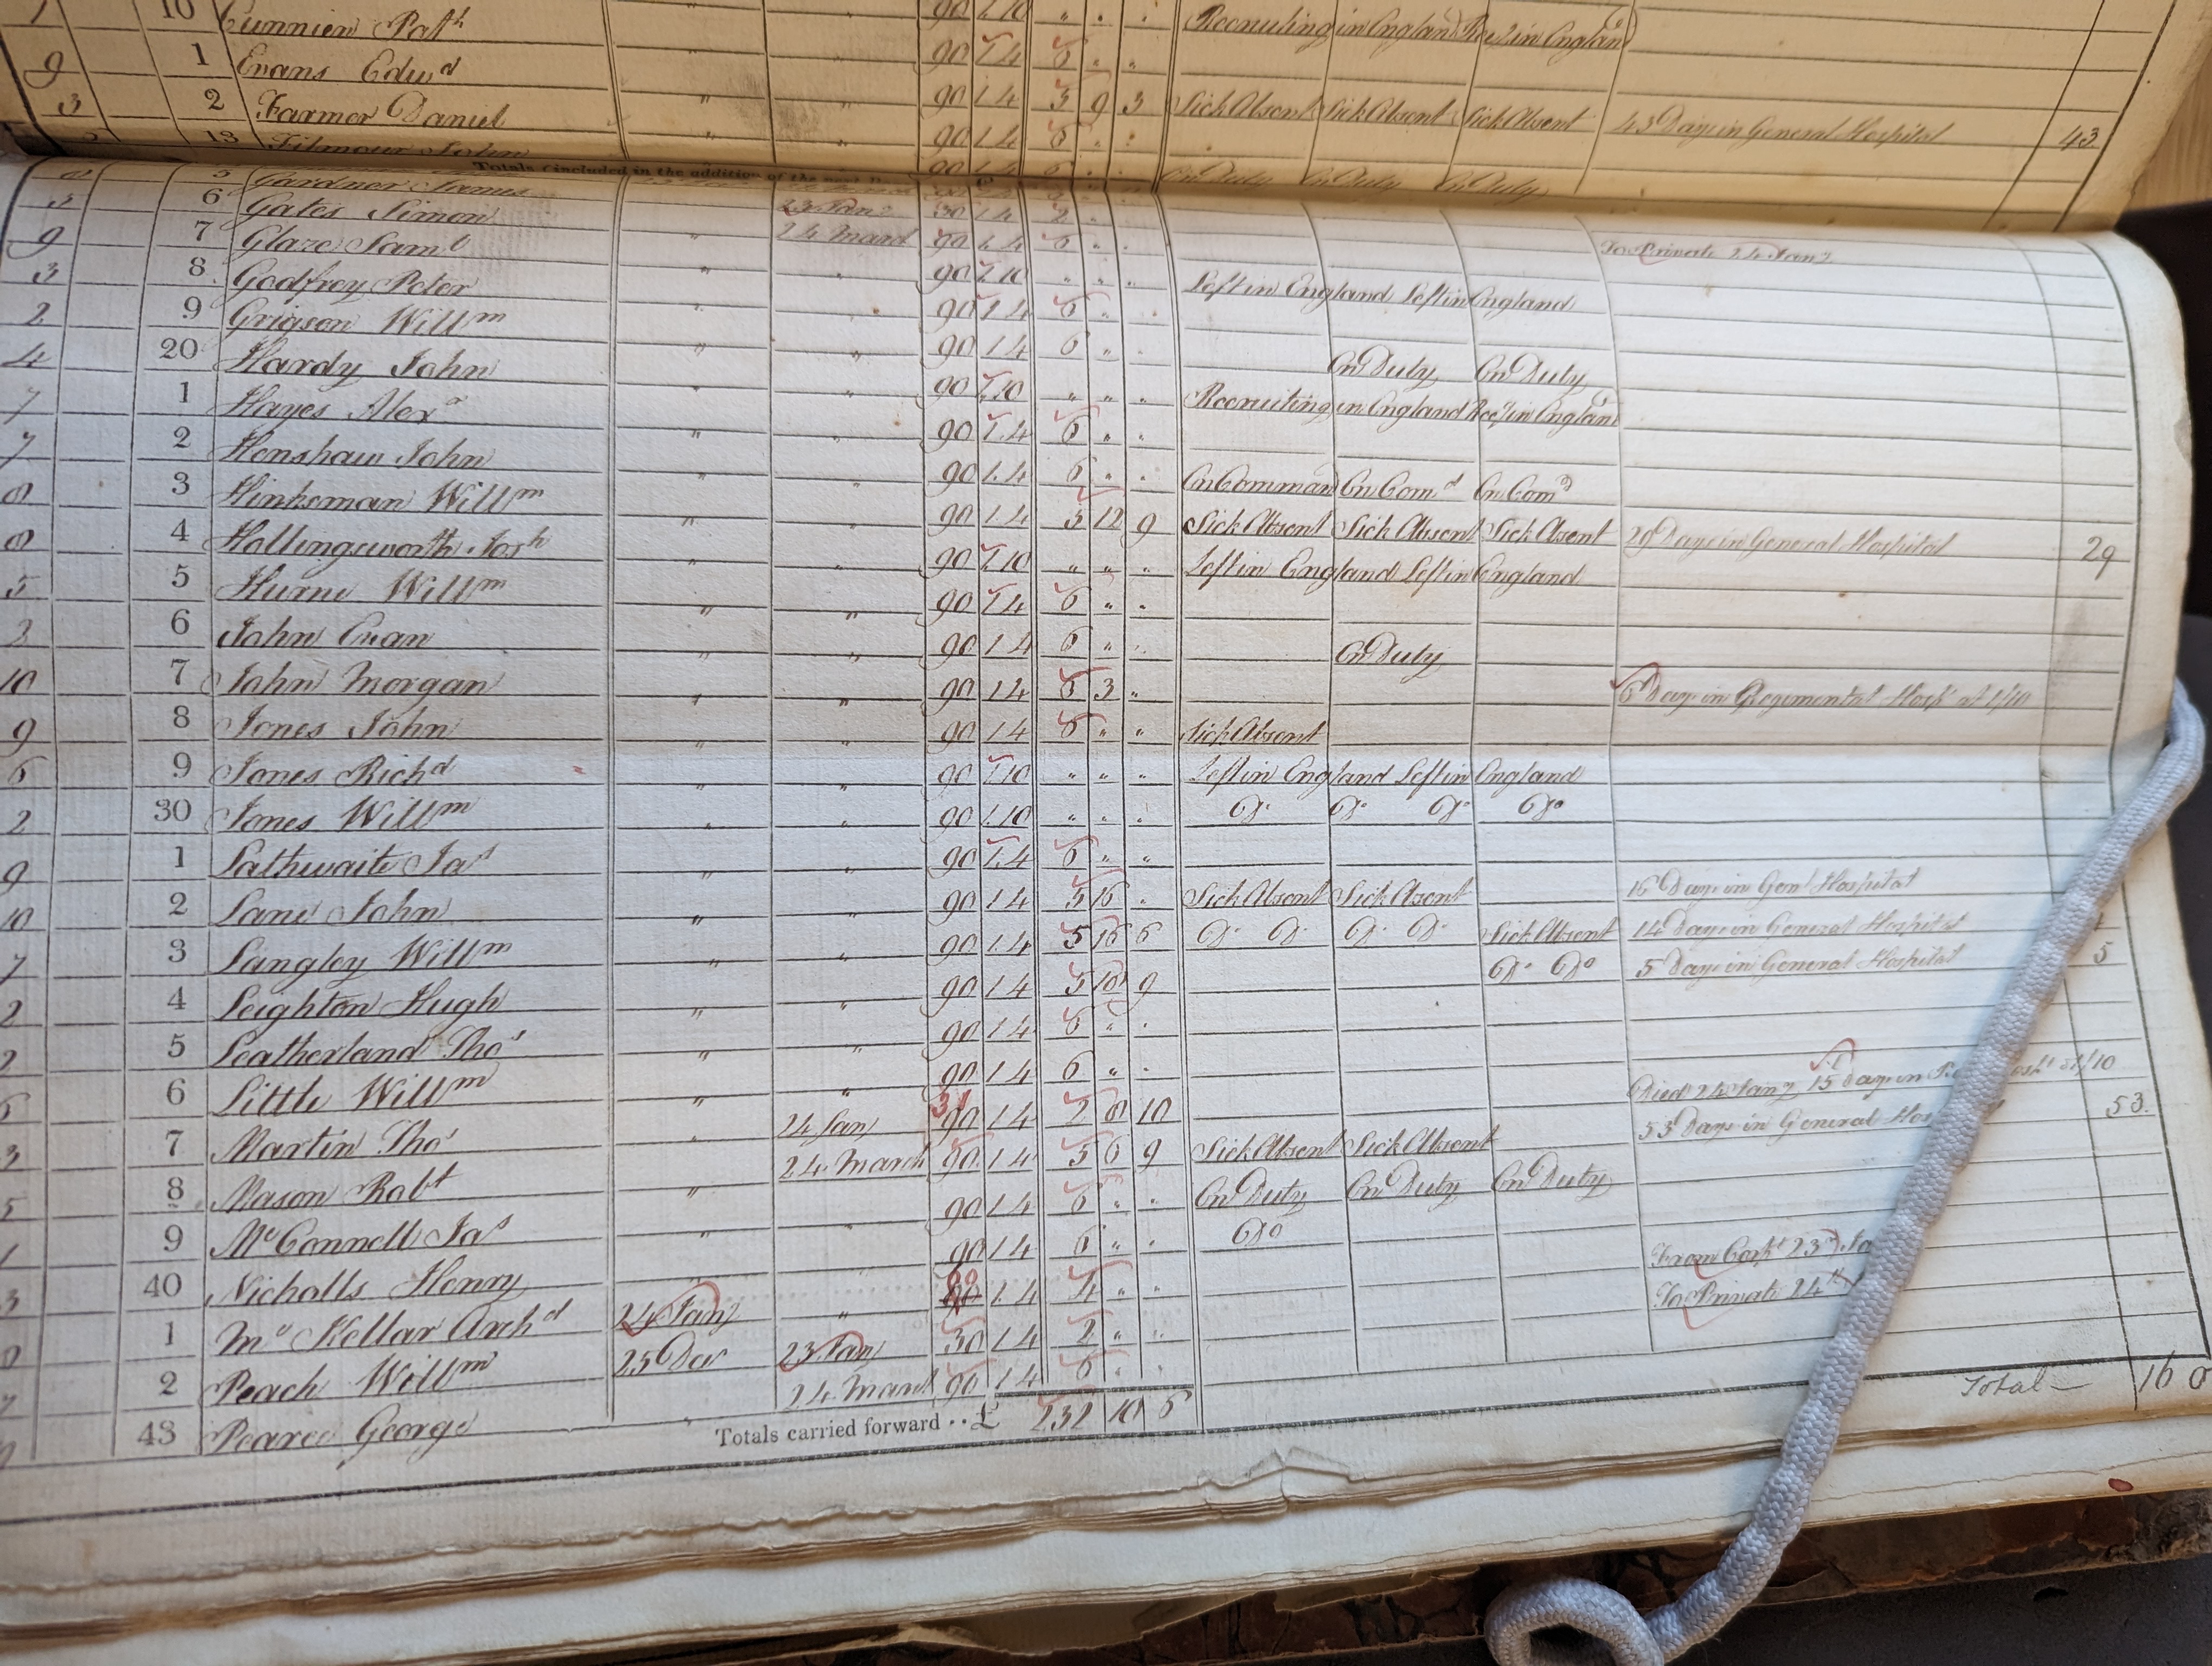 10 Cunnien Path 90 1.10 " " " Recruiting in England Recg in England
9 1 Evans Edwd " " 90 1.4 6 " "
3 2 Farmer Daniel " " 90 1.4 5 9 3 Sick Absent Sick Absent Sick Absent 43 Days in General Hospital 43
13 Filmour John " " 90 1.4 6 " "
Totals (included in the addition of the next
5 Gardner James 90 1.4 6 On Duty On Duty On Duty
3 6 Gates Simon 23 Jany 30 1.4 2 " " To Private 24 Jany
9 7 Glaze Saml " 24 March 90 1.4 6 " "
3 8 Godfrey Peter " " 90 1.10 " " " Left in England Left in England
2 9 Grigson Willm " " 90 1.4 6 " "
4 20 Hardy John " " 90 1.4 6 " " On Duty On Duty
7 1 Hayes Alexr " " 90 1.10 " " " Recruiting in England Recg in England
7 2 Henshaw John " " 90 1.4 6 " "
8 3 Hinksman Willm " " 90 1.4 6 " " On Command On Comd On Comd
8 4 Hollingsworth Josh " " 90 1.4 5 12 9 Sick Absent Sick Absent Sick Absent 29 Days in General Hospital 29
5 5 Hurne Willm " " 90 1.10 " " " Left in England Left in England
2 6 John Evan " " 90 1.4 6 " "
10 7 John Morgan " " 90 1.4 6 " " On Duty
9 8 Jones John " " 90 1.4 6 3 " 6 Days in Regimental Hospl at 1/10
6 9 Jones Richd " " 90 1.4 6 " " Sick Absent
2 30 Jones Willm " " 90 1.10 " " " Left in England Left in England
9 1 Lathwaite Jas " " 90 1.10 " " " Do Do Do Do
10 2 Lane John " " 90 1.4 6 " "
7 3 Langley Willm " " 90 1.4 5 16 " Sick Absent Sick Absent 16 Days in Genl Hospital
2 4 Leighton Hugh " " 90 1.4 5 16 6 Do Do Do Do Sick Absent 14 Days in General Hospital
2 5 Leatherland Thos " " 90 1.4 5 18 9 Do Do 5 Days in General Hospital 5
6 6 Little Willm " " 90 1.4 6 " "
3 7 Martin Thos " " 90 1.4 6 " "
5 8 Mason Robt " 24 Jan 31 90 1.4 2 8 10 Died 24 Jany 15 Days in at 1/10
1 9 McConnell Jas " 24 March 90 1.4 5 6 9 Sick Absent Sick Absent 53 Days in General 53
3 40 Nicholls Henry " " 90 1.4 6 " " On Duty On Duty On Duty
1 Mc Kellar Archd 24 Jany " 60 1.4 4 " " From Corpl 23d
2 Peach Willm 25 Dec 23 Jany 30 1.4 2 " " To Private 24th
43 Pearce George " 24 March 90 1.4 6 " "
Totals carried forward .. £ 232 10 6 Total 16